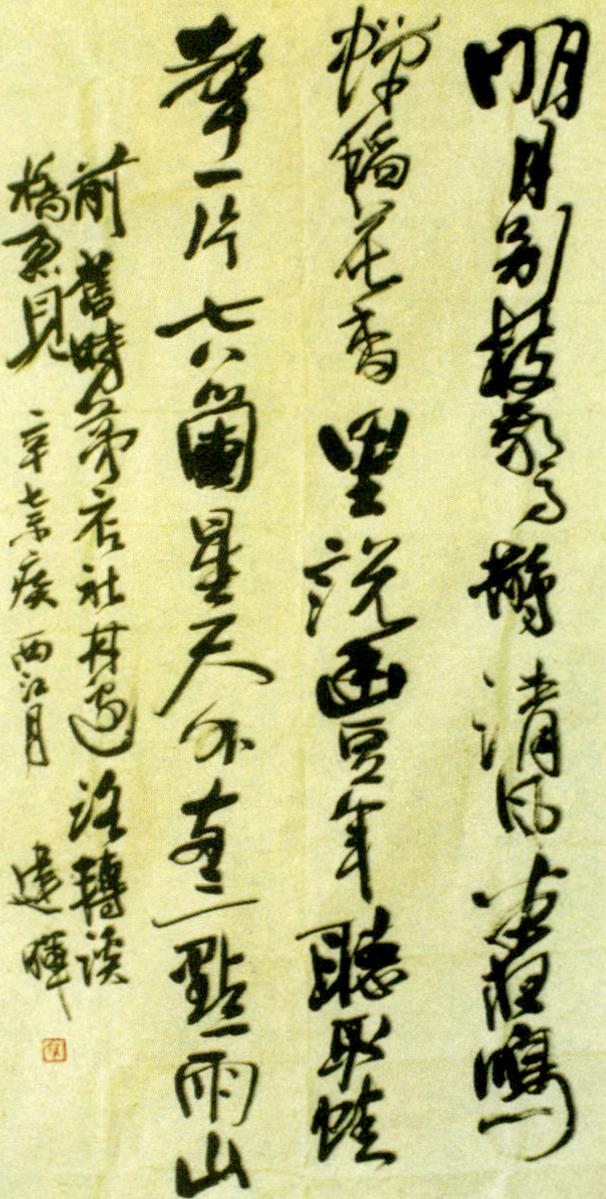 明月别枝驚鵲清風半夜鳴
蟬稻花香里説豐年聽取蛙
聲一片七八箇星天外三點雨山
前舊時茅店社林邊路轉溪
橋忽見 辛棄疾 西江月 達暉